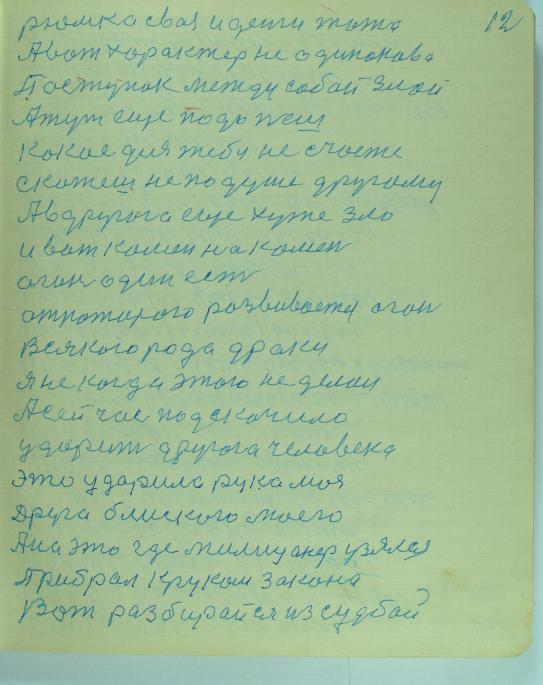 12
рюмка своя и денги тоже
А вот характер не одинокова
Поступок между собой злой
А тут еще подь пеш
Кокое для тебя не счасте
скажеш не по душе другому
А в другога еще хуже зло
и вот комен на комен
огон один ест
от которого розвиваетя огон
всякого рода драки
я не когда этого не делаи
А сей час подскочило
ударит другога человека
это ударила рука моя
друга блиского моего
А на это где милицанер узялся
Прибрал круком закона
Вот разбирайся из судбой